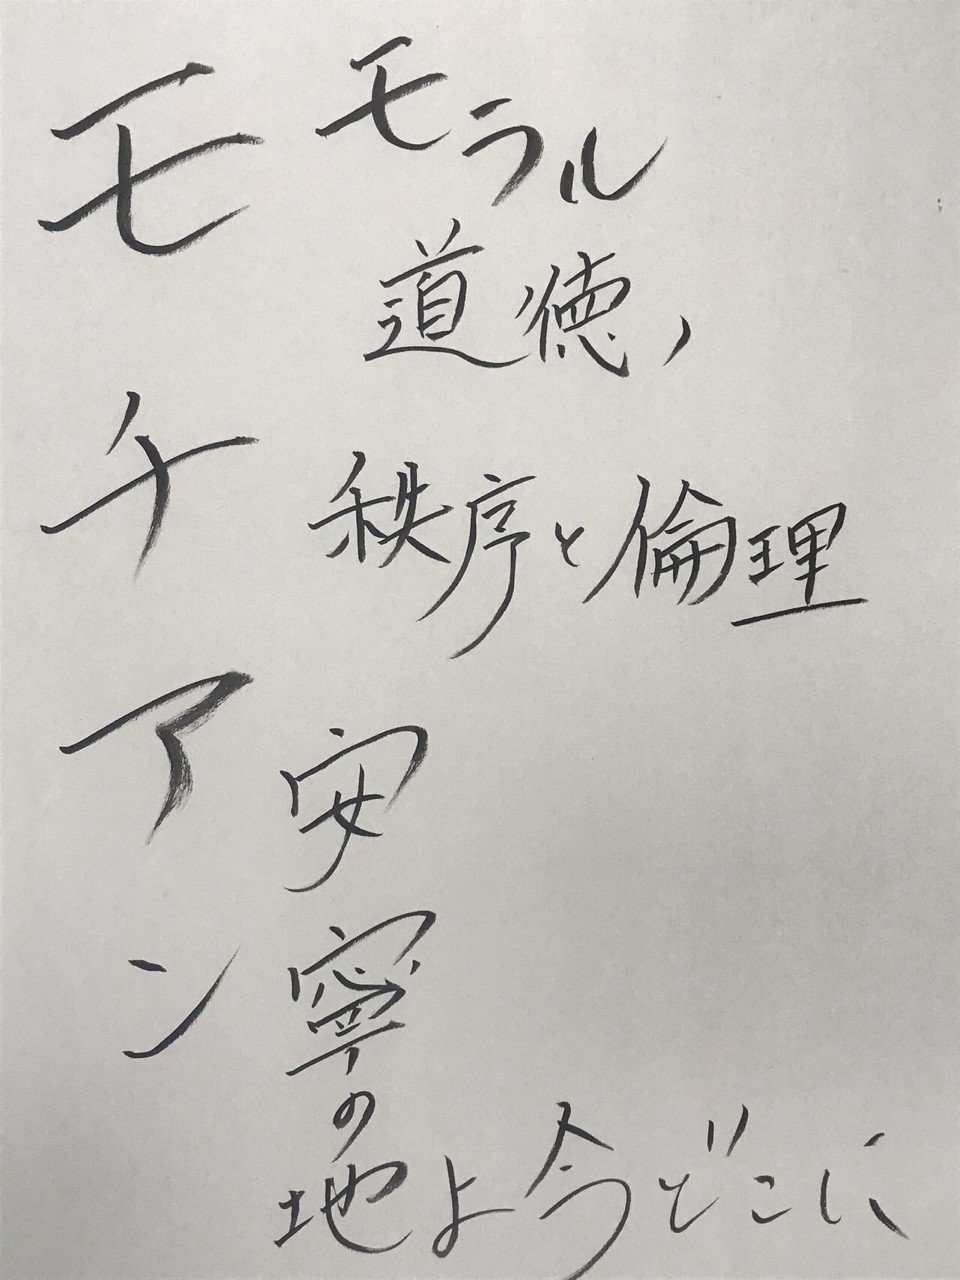 モチアン
モラル
道徳、
秩序と倫理
安寧の
地よ今どこに